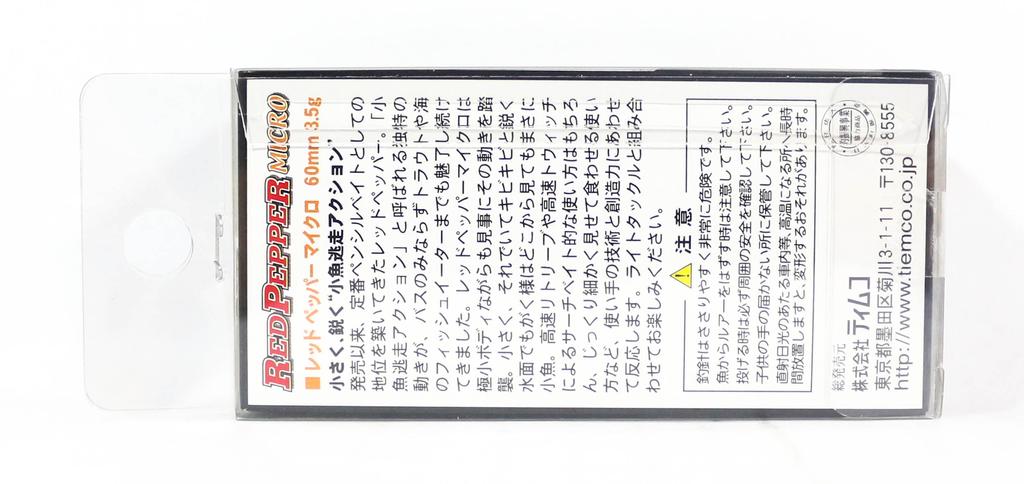 RED PEPPER MICRO
■レッドペッパーマイクロ 60mm 3.5g
小さく、鋭く"小魚逃走アクション"
発売以来、定番ペンシルベイトとしての
地位を築いてきたレッドペッパー。「小
魚逃走アクション」と呼ばれる独特の
動きが、バスのみならずトラウトや海
のフィッシュイーターまでも魅了し続け
てきました。レッドペッパーマイクロは
極小ボディながらも見事にその動きを踏
襲。小さく、それでいてキビキビと鋭く
水面でもがく様はどこから見てもまさに
小魚。高速リトリーブや高速トウィッチ
によるサーチベイト的な使い方はもちろ
ん、じっくり細かく見せて食わせる使い
方など、使い手の技術と創造力にあわせ
て反応します。ライトタックルと組み合
わせてお楽しみください。
注意
釣針はささりやすく非常に危険です。
魚からルアーをはずす時は注意して下さい。
投げる時は必ず周囲の安全を確認して下さい。
子供の手の届かない所に保管して下さい。
直射日光のあたる車内等、高温になる所へ長時
間放置しますと、変形するおそれがあります。
総発売元
株式会社 ティムコ
東京都墨田区菊川3-1-11 〒130-8555
http://www.tiemco.co.jp